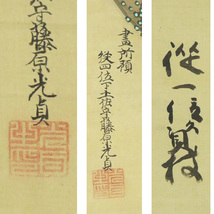 守藤原光貞
畫所預
從四位下土佐守藤原光貞
從一位資枝